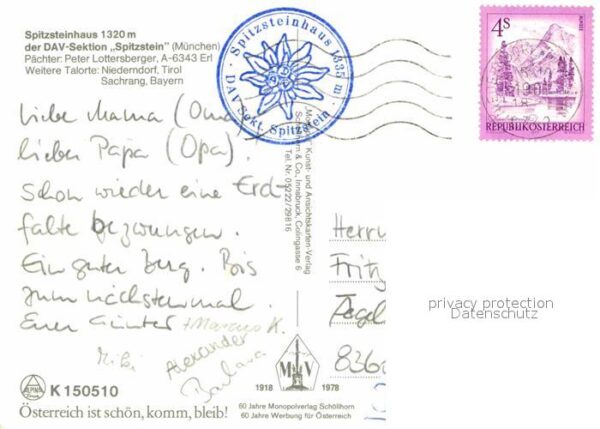 Spitzsteinhaus 1320 m
der DAV-Sektion „Spitzstein" (München)
Pächter: Peter Lottersberger, A-6343 Erl
Weitere Talorte: Niederndorf, Tirol
Sachrang, Bayern
Spitzsteinhaus 1335 m
DAV-Sekt. Spitzstein
4s
REPUBLIK ÖSTERREICH
Liebe Mama (Oma)
lieber Papa (Opa).
Schon wieder eine Erd-
falte bezwungen.
Ein guter Berg. Bis
zum nächstenmal.
Euer Günter + Marcus K.
Miki
Alexander
Barbara
Kunst- und Ansichtskarten-Verlag
& Co., Innsbruck, Colingasse 6
Tel. Nr. 05222/29816
Herrn
Fritz
836
privacy protection
Datenschutz
K 150510
Österreich ist schön, komm, bleib!
1918
M V
1978
60 Jahre Monopolverlag Schöllhorn
60 Jahre Werbung für Österreich